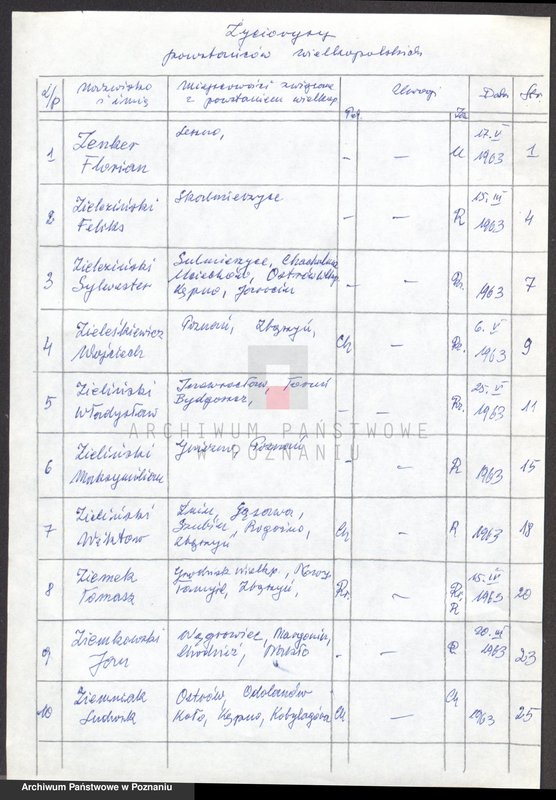 Życiorysy
powstańców wielkopolskich
L/p Nazwisko i imię Miejscowości związane z powstaniem wielkop. Uwagi Data Str
1 Zenker Florian Leszno, - - U 17.V 1963 1
2 Zieleziński Feliks - - R 15.III 1963 4
3 Zieleziński Sylwester Sulmierzyce, Chachalnia Ostrów Wlkp Kępno, Jarocin - - Rz. 1963 7
4 Zieleśkiewicz Wojciech Poznań, Zbąszyń, Ch - Rz. 6.V 1963 9
5 Zieliński Władysław Inowrocław, Toruń Bydgoszcz, - - Rz. 25.V 1963 11
6 Zieliński Maksymilian Gniezno, Poznań - - R 1963 15
7 Zieliński Wiktor Żnin, Gąsawa, Szubin, Rogoźno, Zbąszyń Ch - R 1963 18
8 Ziemek Tomasz Grodzisk Wielkp., Nowy Tomyśl, Zbąszyń, Rz. - Rz. R 15.IV 1963 20
9 Ziemkowski Jan Wągrowiec, Margonin, Chodzież, - - R 20.III 1963 23
10 Ziemniak Ludwik Ostrów, Odolanów Koło, Kępno, Kobylagóra Ch - Ch 1963 25
ARCHIWUM PAŃSTWOWE
W POZNANIU
Archiwum Państwowe w Poznaniu